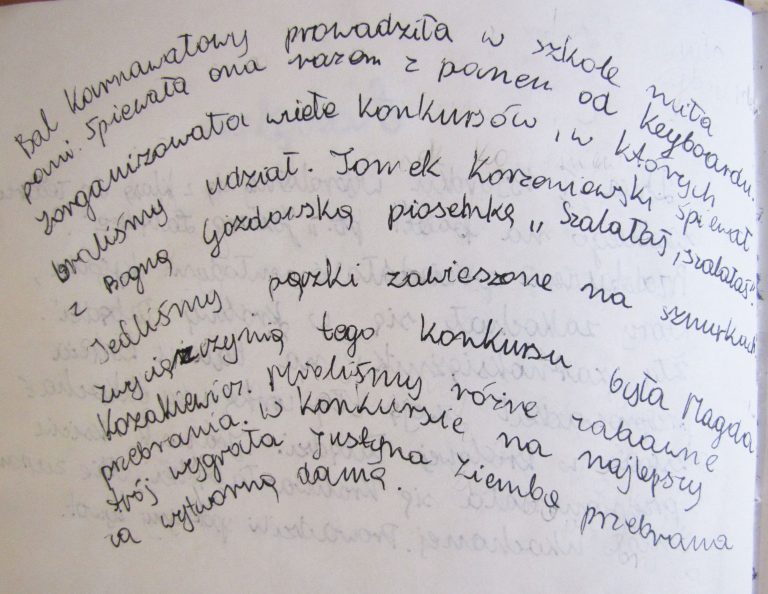 Bal Karnawałowy prowadziła w szkole miła
pani. Śpiewała ona razem z panem od keyboardu.
Zorganizowała wiele konkursów, w których
braliśmy udział. Tomek Korzeniewski śpiewał
z Bogną Gozdowską piosenkę „Szalałaś, szalałaś".
Jedliśmy pączki zawieszone na sznurkach
zwyciężczynią tego konkursu była Magda
Kozakiewicz. Mieliśmy różne zabawne
przebrania. W konkursie na najlepszy
strój wygrała Justyna Ziemba przebrana
za wytworną damą.